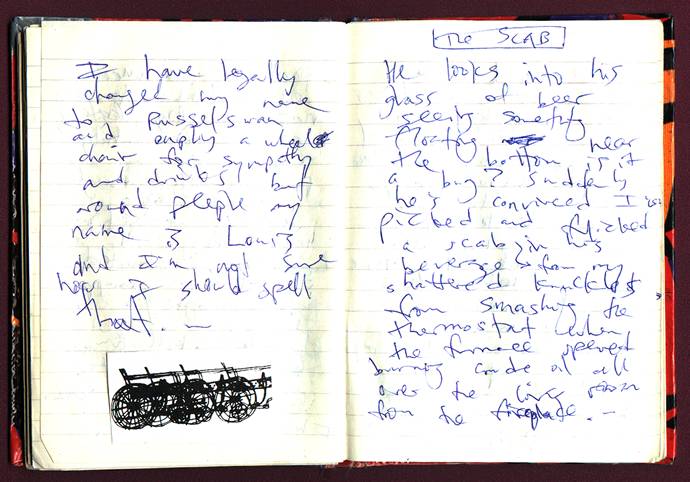 I have legally
changed my name
to Russel Swan
and employ a wheel
chair for sympathy
and drinks but
around people my
name is Louis
and I'm not sure
how I should spell
that. —
The SCAB
He looks into his
glass of beer
seeing something
floating near
the bottom is it
a bug? Suddenly
he's convinced I
picked and flicked
a scab in his
beverage from my
shattered knuckles
from smashing the
thermostat when
the furnace spewed
burning crude oil all
over the living room
from the fireplace. —